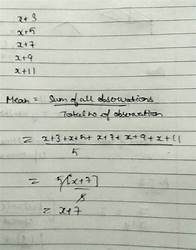 x+3
x+5
x+7
x+9
x+11
Mean = Sum of all observations
Total no of observation
= x+3+x+5+x+7+x+9+x+11
5
= 5[x+7]
5
= x+7